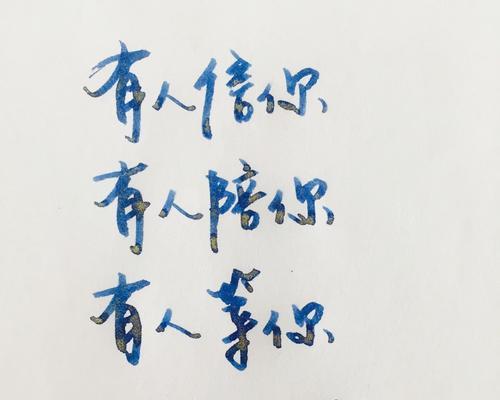 有人信你
有人陪你
有人等你